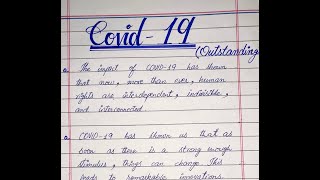 Covid-19
(Outstanding
The impact of COVID-19 has shown
that now, more than ever, human
rights are interdependent, indivisible,
and interconnected.
COVID-19 has shown us that as
soon as there is a strong enough
stimulus, things can change. This
leads to remarkable innovations.